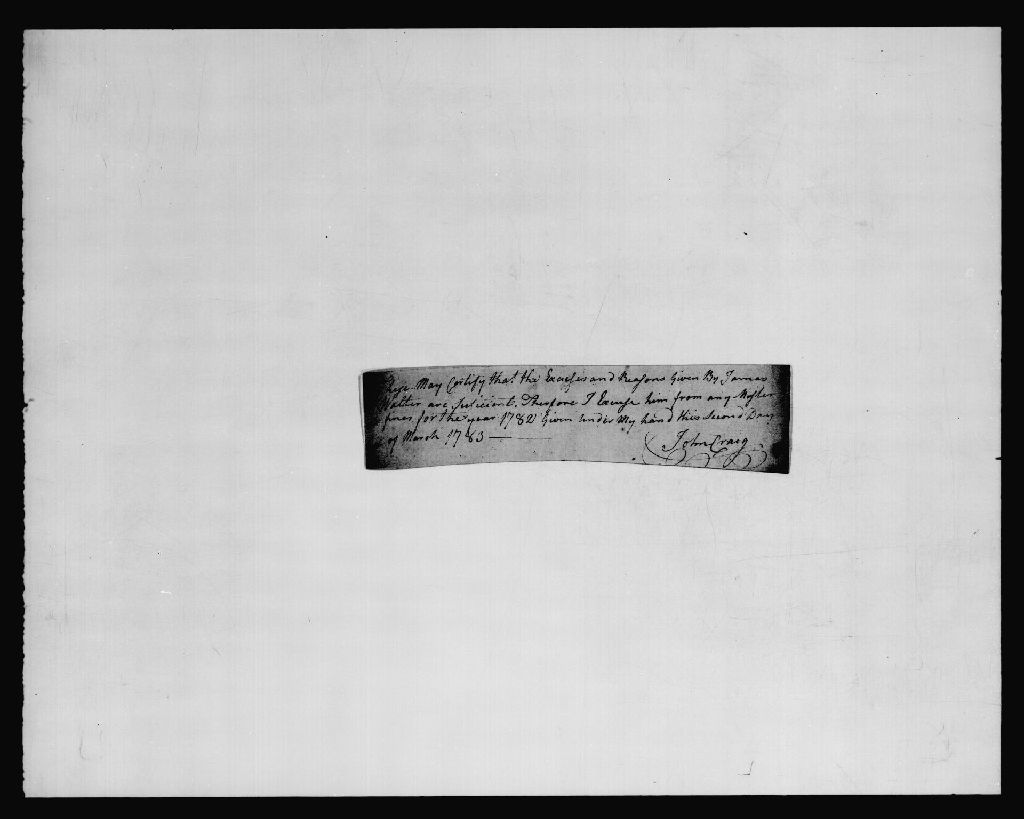 These May Certify that the Excuses and Reasons Given By James
Walter are suficient. Therefore I Excuse him from any Muster
fines for the year 1782 Given Under My hand this Second Day
of March 1783
John Craig